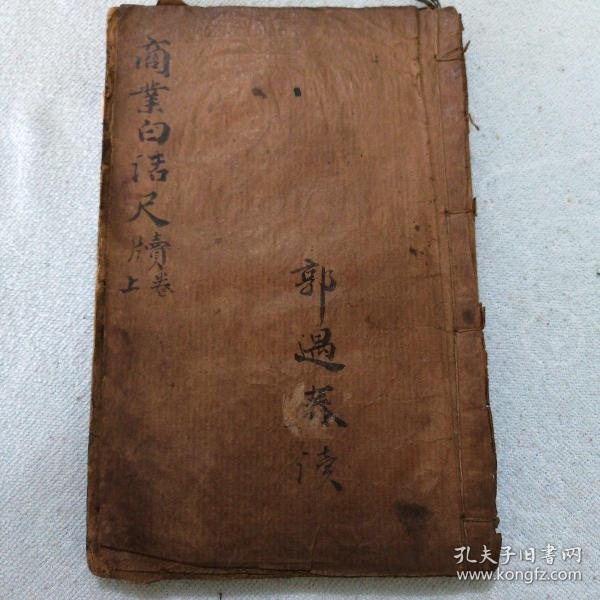 商業白話尺牘卷上
郭遇
读
孔夫子旧书网
www.kongfz.com